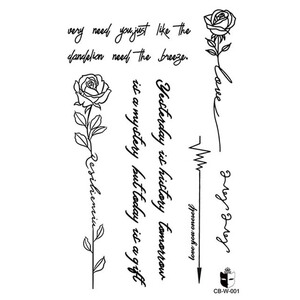 very need you,just like the
dandelion need the breeze.
love
Resilience
Yesterday is history tomorrow
is a mystery but today is a gift
CB-W-001